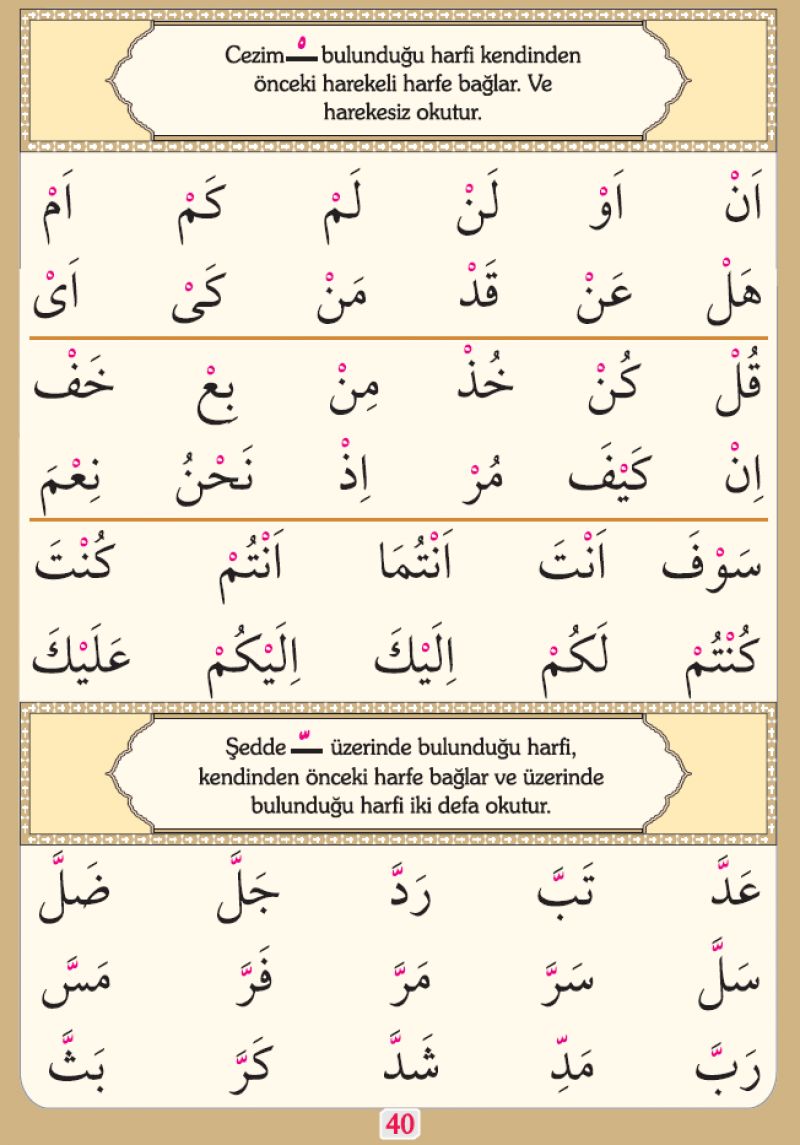 Cezim ـْـ bulunduğu harfi kendinden
önceki harekeli harfe bağlar. Ve
harekesiz okutur.
اَنْ اَوْ لَنْ لَمْ كَمْ اَمْ
هَلْ عَنْ قَدْ مَنْ كَىْ اَىْ
قُلْ كُنْ خُذْ مِنْ بِعْ خَفْ
اِنْ كَيْفَ مُرْ اِذْ نَحْنُ نِعْمَ
سَوْفَ اَنْتَ اَنْتُمَا اَنْتُمْ كُنْتَ
كُنْتُمْ لَكُمْ اِلَيْكَ اِلَيْكُمْ عَلَيْكَ
Şedde ـّـ üzerinde bulunduğu harfi,
kendinden önceki harfe bağlar ve üzerinde
bulunduğu harfi iki defa okutur.
عَدَّ تَبَّ رَدَّ جَلَّ ضَلَّ
سَلَّ سَرَّ مَرَّ فَرَّ مَسَّ
رَبَّ مَدِّ شَدَّ كَرَّ بَثَّ
40